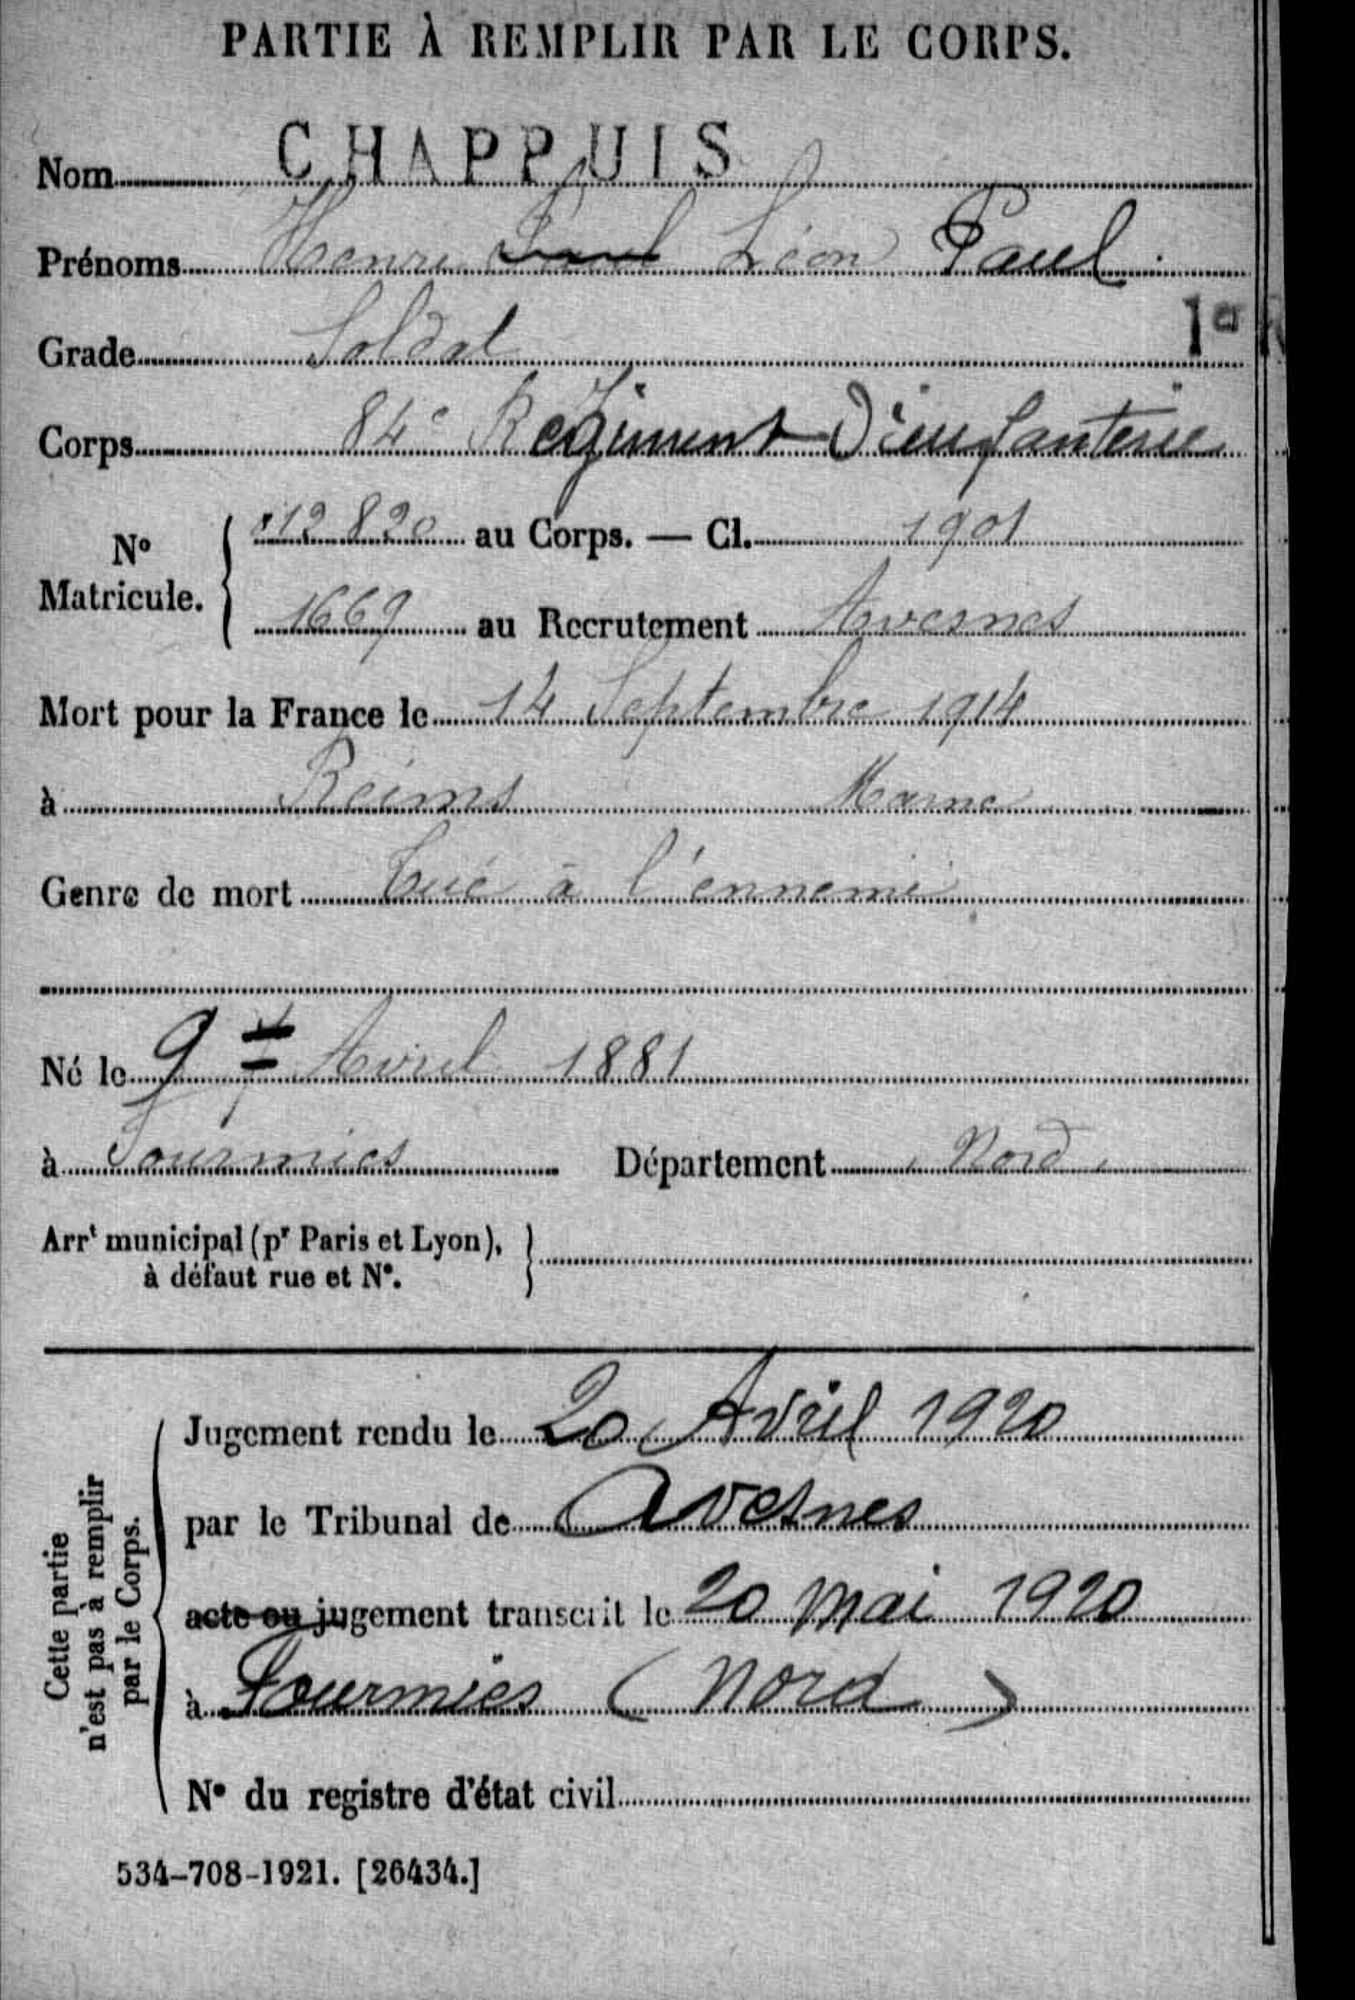 PARTIE À REMPLIR PAR LE CORPS.
Nom CHAPPUIS
Prénoms Henri Paul Léon Paul
Grade Soldat
1er
Corps 84e Régiment d'infanterie
No Matricule. { 12 820 au Corps. — Cl. 1901
1669 au Recrutement Avesnes
Mort pour la France le 14 Septembre 1914
à Reims Marne
Genre de mort Tué à l'ennemi
Né le 9 Avril 1881
à Fourmies Département Nord
Arrt municipal (pr Paris et Lyon), }
à défaut rue et N°.
Cette partie
n'est pas à remplir
par le Corps.
Jugement rendu le 20 Avril 1920
par le Tribunal de Avesnes
acte ou jugement transcrit le 20 mai 1920
à Fourmies (Nord)
N° du registre d'état civil
534-708-1921. [26434.]